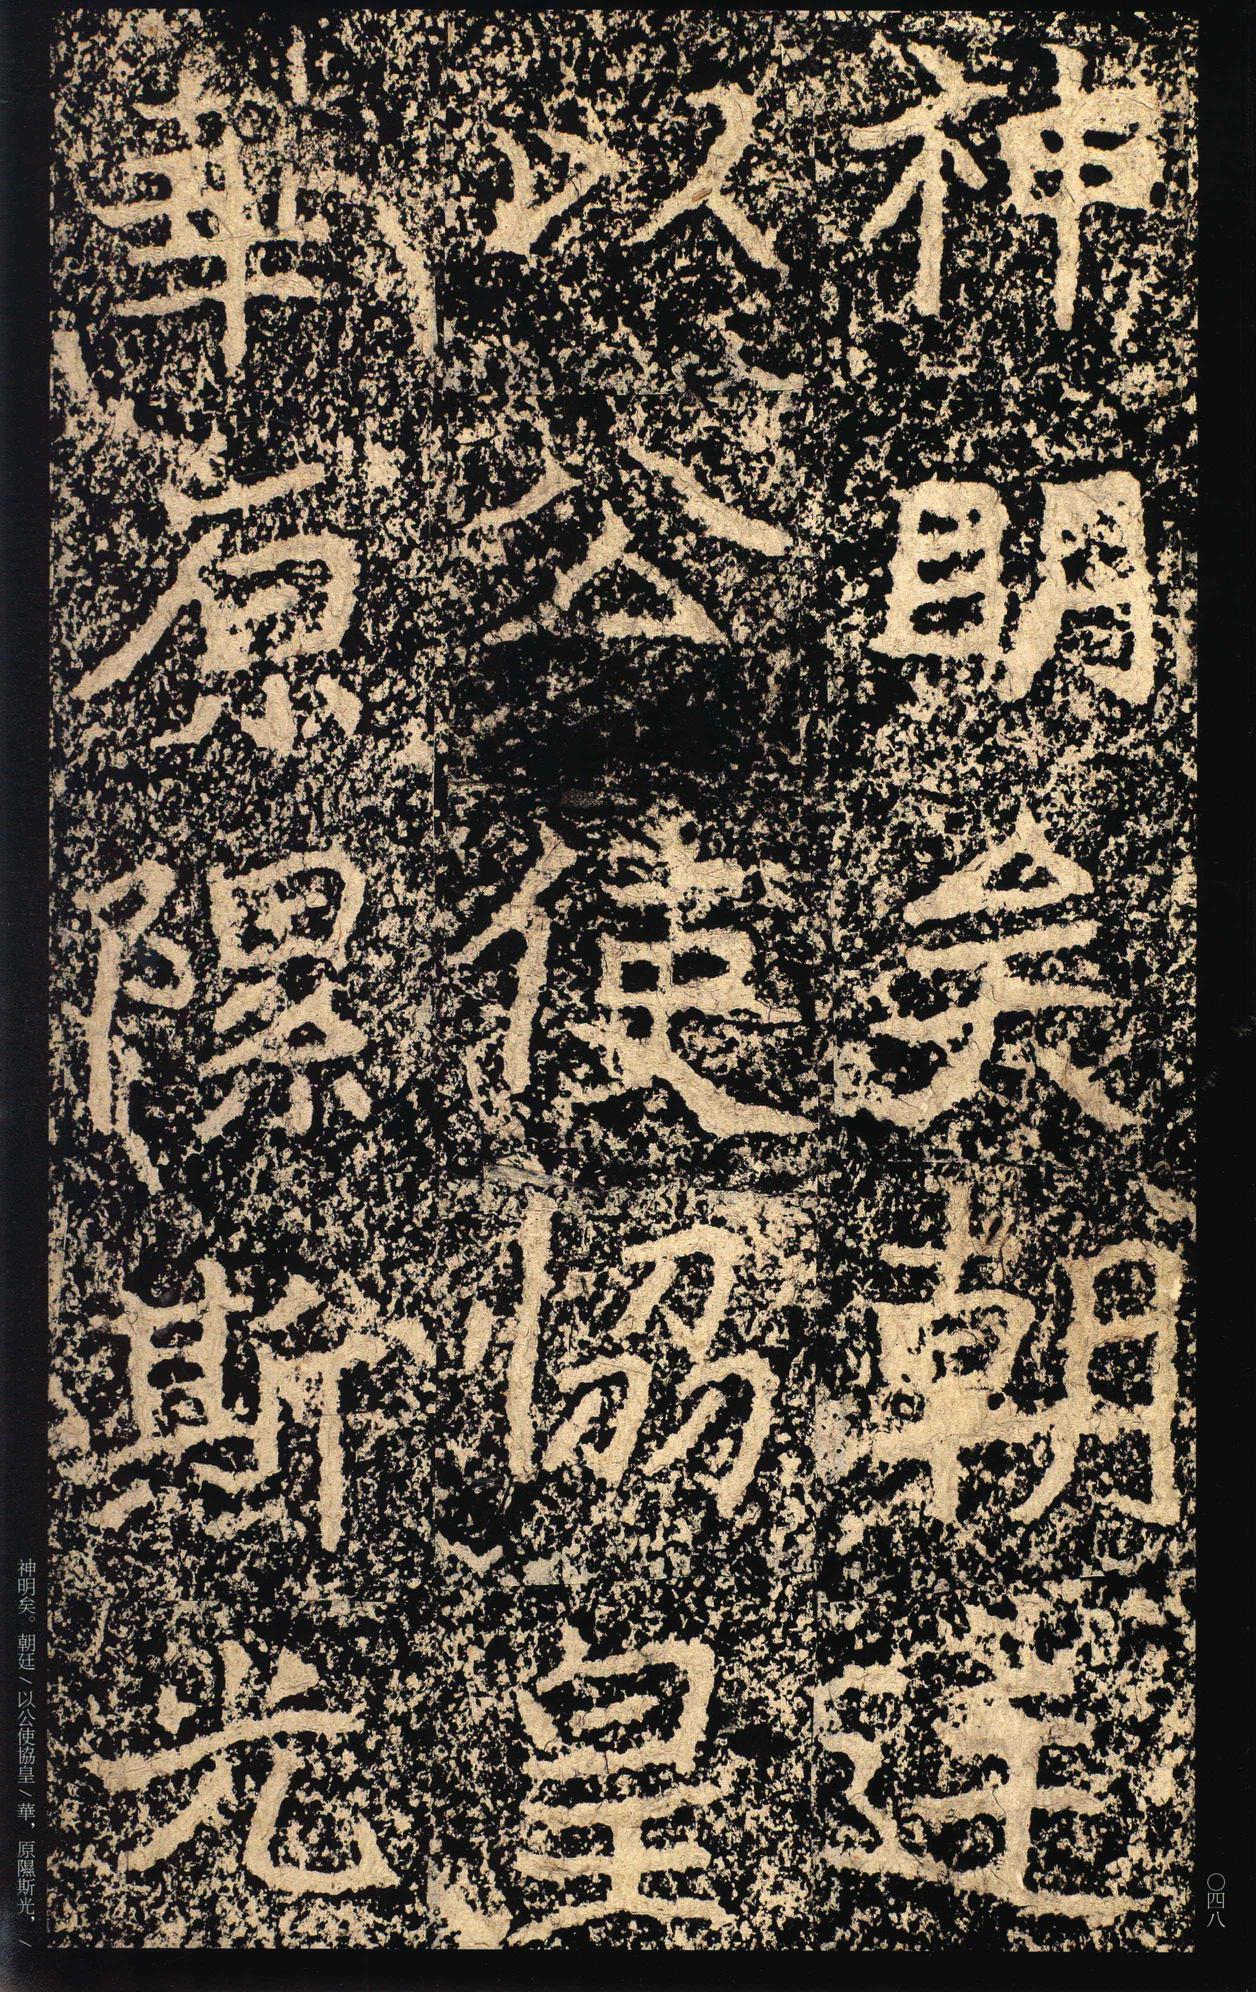 神明矣朝廷
以公使協皇
華原隰斯光
神明矣。朝廷／以公使協皇／華，原隰斯光，／
〇四八